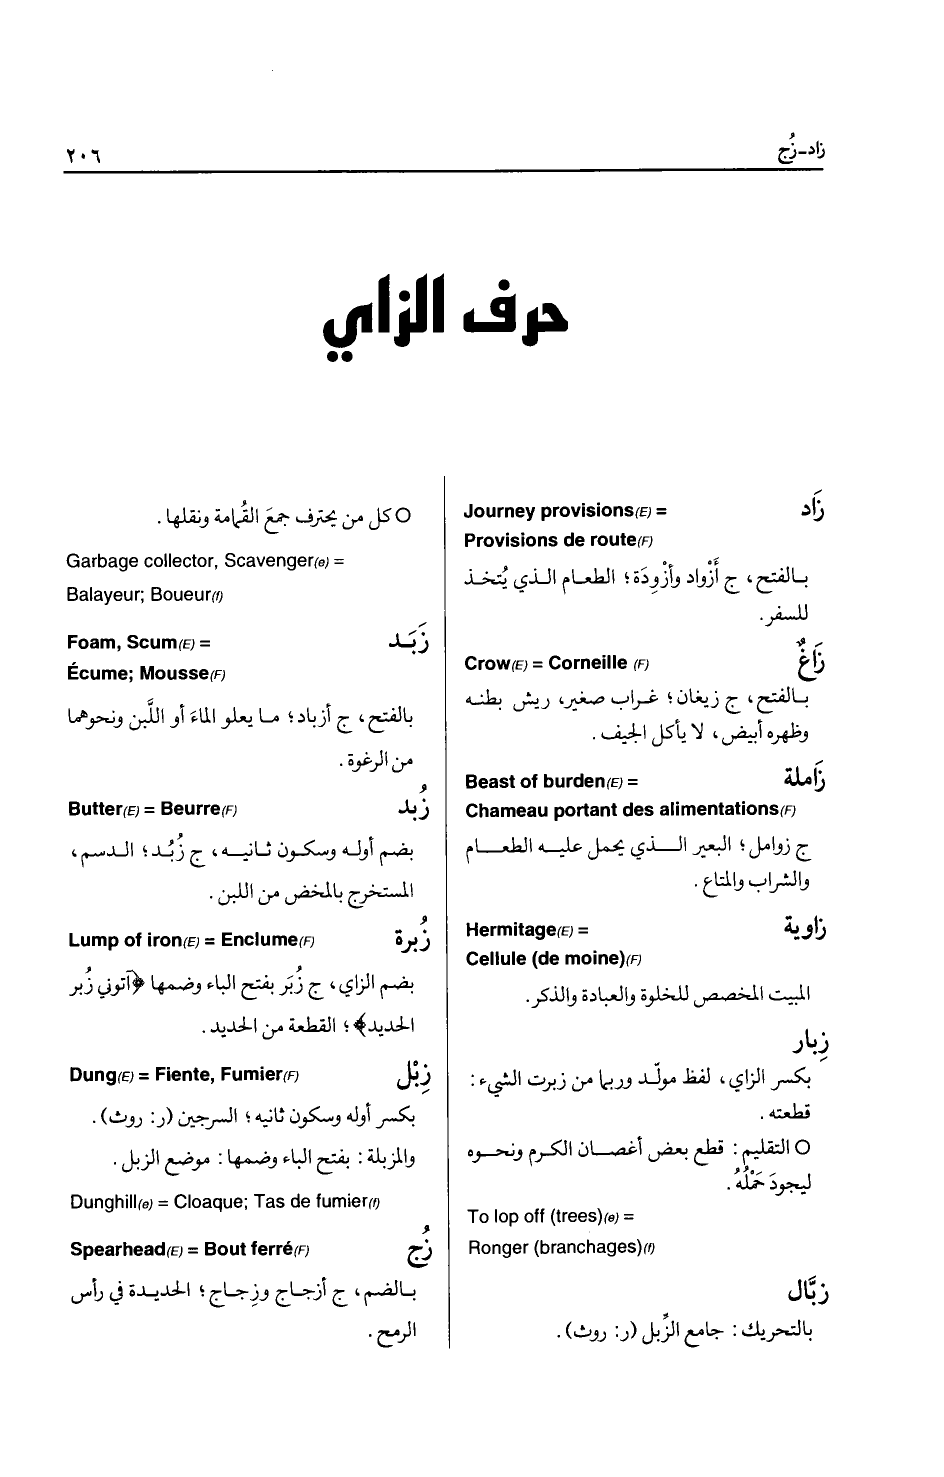 زاد-زُج
٢٠٦
حرف الزاي
زَاد Journey provisions(E) =
Provisions de route(F)
بالفتح، ج أَزْواد وأَزْوِدَة؛ الطعام الذي يُتخذ
للسفر.
زَاغٌ Crow(E) = Corneille (F)
بالفتح، ج زيغان؛ غراب صغير، ريش بطنه
وظهره أبيض، لا يأكل الجيف.
زَاملة Beast of burden(E) =
Chameau portant des alimentations(F)
ج زوامل؛ البعير الذي يحمل عليه الطعام
والشراب والمتاع.
زاوية Hermitage(E) =
Cellule (de moine)(F)
البيت المخصص للخلوة والعبادة والذكر.
زِبار
بكسر الزاي، لفظ مولّد وربما من زبرت الشيء:
قطعته.
O التقليم: قطع بعض أغصان الكرم ونحوه
ليجودَ حَمْلُهُ.
To lop off (trees)(e) =
Ronger (branchages)(f)
زبَّال
بالتحريك: جامع الزِّبل (ر: روث).
O كل من يحترف جمعَ القُمامة ونقلها.
Garbage collector, Scavenger(e) =
Balayeur; Boueur(f)
زَبَد Foam, Scum(E) =
Écume; Mousse(F)
بالفتح، ج أزباد؛ ما يعلو الماءَ أو اللَّبن ونحوهما
من الرغوة.
زُبد Butter(E) = Beurre(F)
بضم أوله وسكون ثانيه، ج زُبُد؛ الدسم،
المستخرج بالمخض من اللبن.
زُبرة Lump of iron(E) = Enclume(F)
بضم الزاي، ج زُبَر بفتح الباء وضمها ﴿آتوني زُبر
الحديد﴾؛ القطعة من الحديد.
زِبْل Dung(E) = Fiente, Fumier(F)
بكسر أوله وسكون ثانيه؛ السرجين (ر: روث).
والمزبلة: بفتح الباء وضمها: موضع الزبل.
Dunghill(e) = Cloaque; Tas de fumier(f)
زُج Spearhead(E) = Bout ferré(F)
بالضم، ج أزجاج وزِجاج؛ الحديدة في رأس
الرمح.